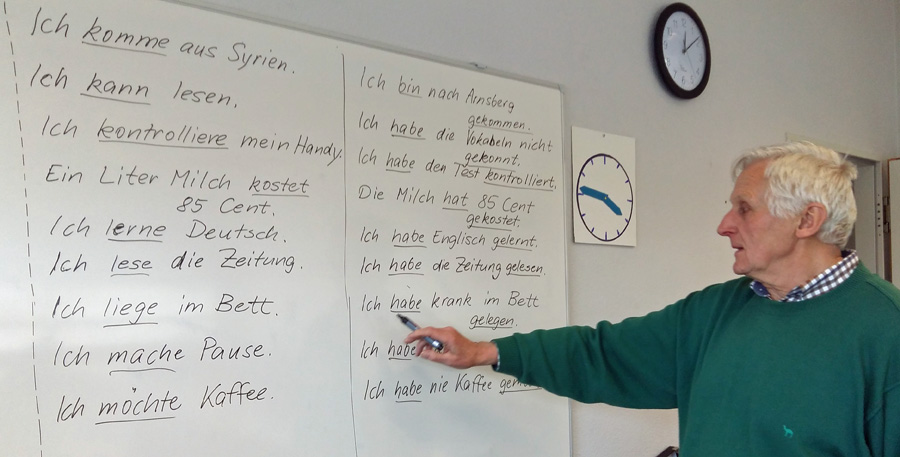 Ich komme aus Syrien.
Ich kann lesen.
Ich kontrolliere mein Handy.
Ein Liter Milch kostet
85 Cent.
Ich lerne Deutsch.
Ich lese die Zeitung.
Ich liege im Bett.
Ich mache Pause.
Ich möchte Kaffee.
Ich bin nach Arnsberg
gekommen.
Ich habe die Vokabeln nicht
gekonnt.
Ich habe den Test kontrolliert.
Die Milch hat 85 Cent
gekostet.
Ich habe Englisch gelernt.
Ich habe die Zeitung gelesen.
Ich habe krank im Bett
gelegen.
Ich habe
Ich habe nie Kaffee